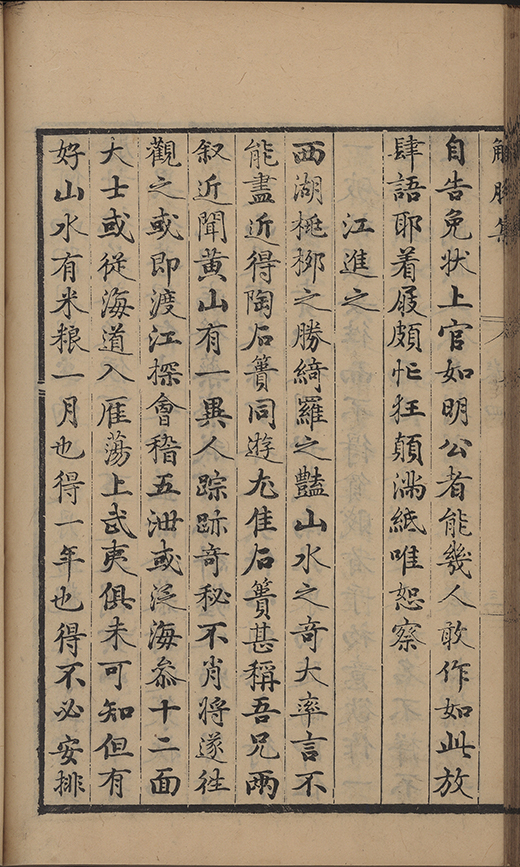 解脫集
自告免狀上官如明公者能幾人敢作如此放
肆語耶着屐頗忙狂顛滿紙唯恕察
江進之
西湖桃柳之勝綺羅之豔山水之奇大率言不
能盡近得陶石簣同遊尤佳石簣甚稱吾兄兩
叙近聞黄山有一異人踪跡奇秘不肖將遂往
觀之或即渡江探會稽五泄或泛海叅十二面
大士或從海道入雁蕩上武夷俱未可知但有
好山水有米粮一月也得一年也得不必安排